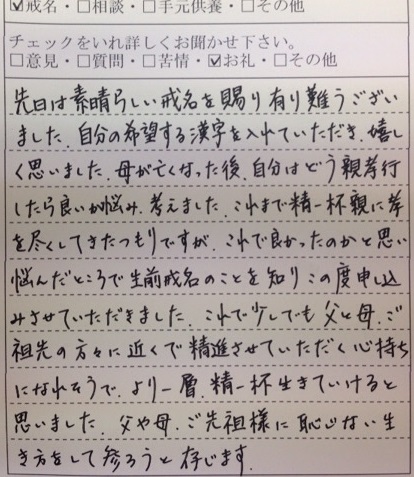 ☑戒名・□相談・□手元供養・□その他
チェックをいれ詳しくお聞かせ下さい。
□意見・□質問・□苦情・☑お礼・□その他
先日は素晴らしい戒名を賜り有り難うござい
ました。自分の希望する漢字を入れていただき、嬉し
く思いました。母が亡くなった後、自分はどう親孝行
したら良いか悩み、考えました。これまで精一杯親に孝
を尽くしてきたつもりですが、これで良かったのかと思い
悩んだところで生前戒名のことを知りこの度申し込
みさせていただきました。これで少しでも父と母、ご
祖先の方々に近くで精進させていただく心持ち
になれそうで、より一層、精一杯生きていけると
思いました。父や母、ご先祖様に恥じない生
き方をして参ろうと存じます。